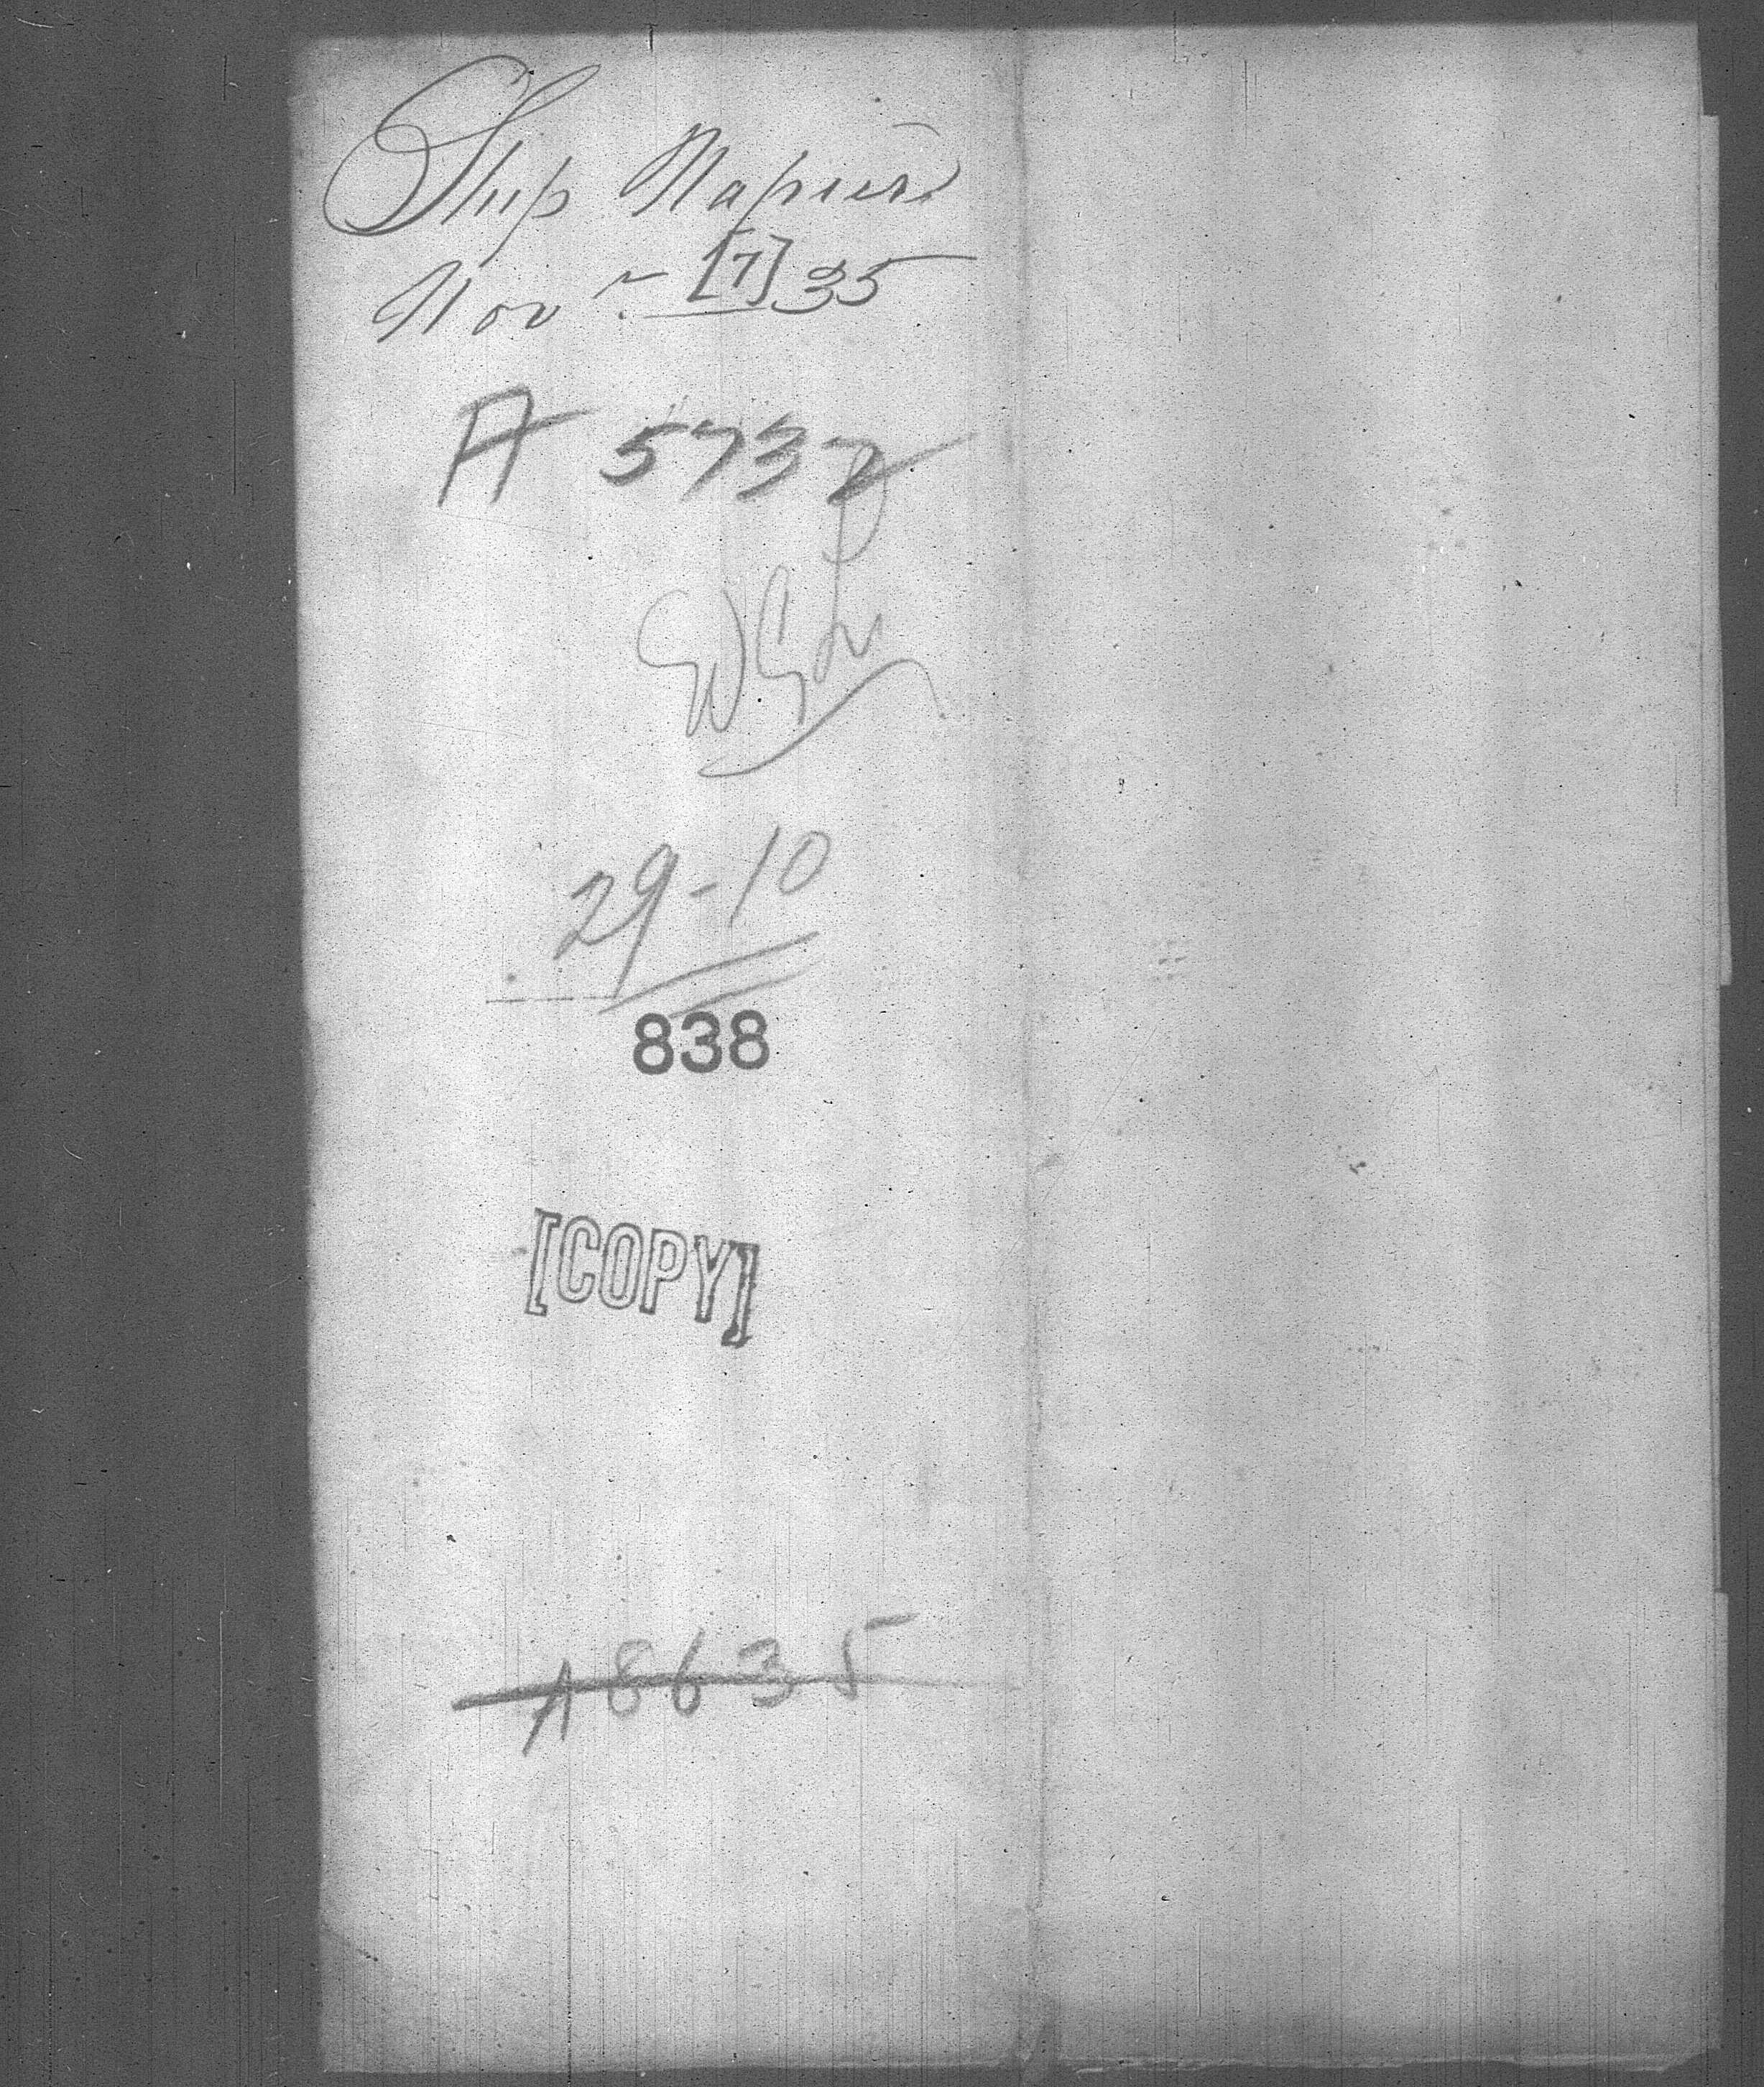 Ship Napier
Nov r. [7] 35
A 5732
29-10
838
[COPY]
A 8635